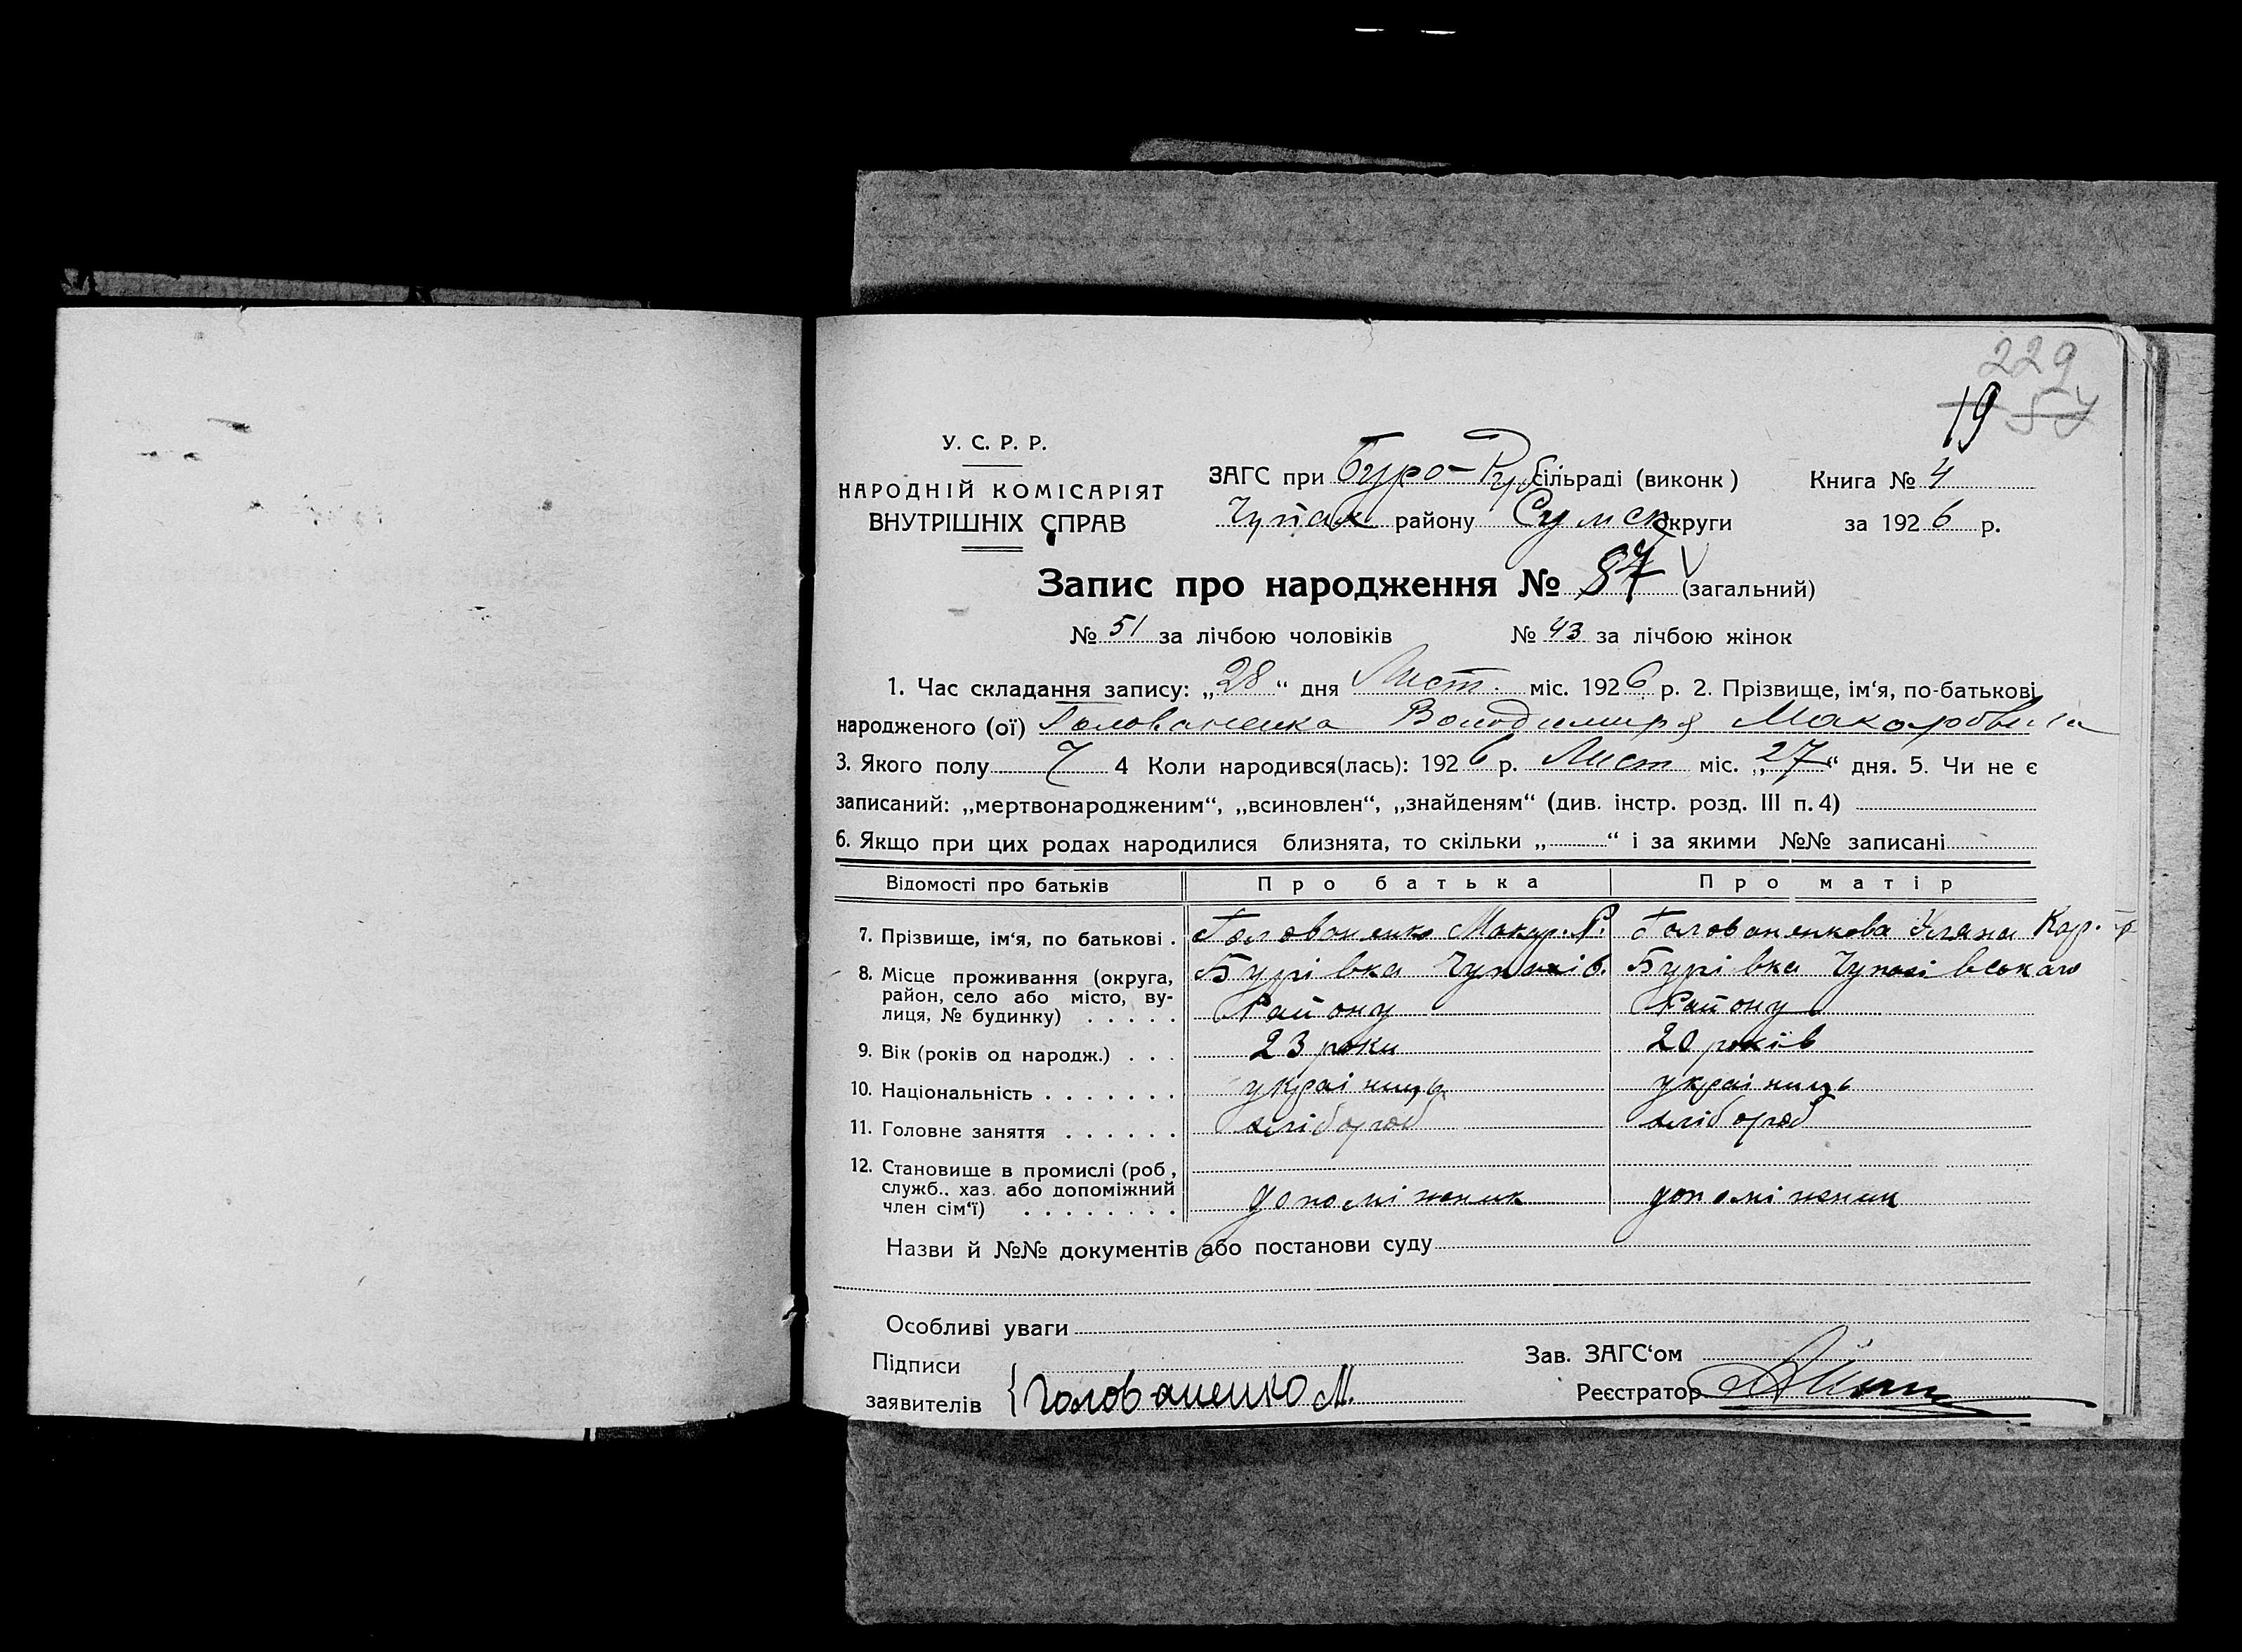 229
19 54
У. С. Р. Р.
НАРОДНІЙ КОМІСАРІЯТ
ВНУТРІШНІХ СПРАВ
ЗАГС при Буро-Руб сільраді (виконк)
Чупах району Сумск округи
Книга № 4
за 1926 р.
Запис про народження № 87 (загальний)
№ 51 за лічбою чоловіків № 43 за лічбою жінок
1. Час складання запису: „28“ дня Лист. міс. 1926 р. 2. Прізвище, ім‘я, по-батькові
народженого (ої) Голованенка Володимиря Макаровича
3. Якого полу Ч 4 Коли народився(лась): 1926 р. Лист міс. „27“ дня. 5. Чи не є
записаний: „мертвонародженим“, „всиновлен“, „знайденям“ (див. інстр. розд. III п. 4)
6. Якщо при цих родах народилися близнята, то скільки „ “ і за якими №№ записані
Відомості про батьків Про батька Про матір
7. Прізвище, ім‘я, по батькові . Голованенко Макар. Р. Голованенкова Уляна Кар.
8. Місце проживання (округа, Бурівка Чупахів. Бурівка Чупахівського
район, село або місто, ву-
лиця, № будинку) . . . . . Району Району
9. Вік (років од народж.) . . . 23 роки 20 років
10. Національність . . . . . . . українець українець
11. Головне заняття . . . . . . хлібороб хлібороб
12. Становище в промислі (роб ,
служб.. хаз. або допоміжний
член сім‘ї) . . . . . . . . допоміжник допоміжник
Назви й №№ документів або постанови суду
Особливі уваги
Підписи
заявителів Голованенко М.
Зав. ЗАГС‘ом
Реєстратор